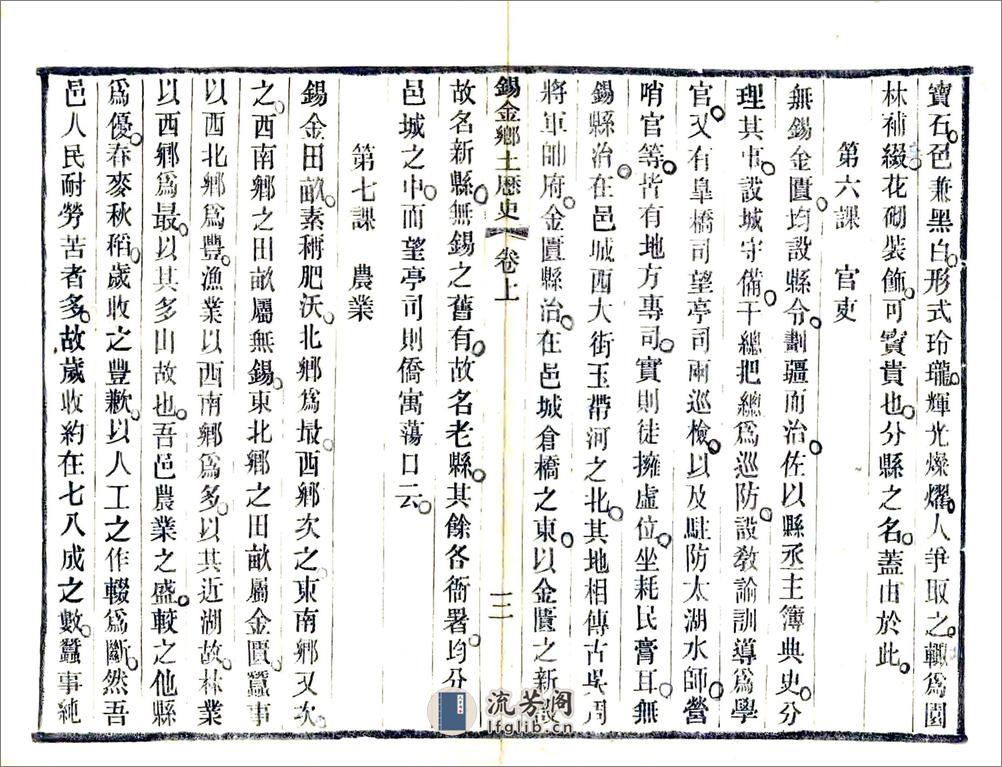 寶石。色兼黑白。形式玲瓏。輝光燦爛。人爭取之。輒爲園
林補綴。花砌裝飾。可寶貴也。分縣之名。蓋由於此。
第六課 官吏
無錫金匱。均設縣令。劃疆而治。佐以縣丞主簿典史。分
理其事。設城守備。千總把總爲巡防。設敎諭訓導爲學
官。又有阜橋司望亭司兩巡檢。以及駐防太湖水師。營
哨官等。皆有地方專司。實則徒擁虛位。坐耗民膏耳。無
錫縣治。在邑城西大街玉帶河之北。其地相傳古吳
將軍帥府。金匱縣治。在邑城倉橋之東。以金匱之新設。
錫金鄉土歷史 卷上 三
故名新縣。無錫之舊有。故名老縣。其餘各衙署。均分
邑城之中。而望亭司則僑寓蕩口云。
第七課 農業
錫金田畝。素稱肥沃。北鄉爲最。西鄉次之。東南鄉又次
之。西南鄉之田畝屬無錫。東北鄉之田畝屬金匱。蠶事
以西北鄉爲豐。漁業以西南鄉爲多。以其近湖故。林業
以西鄉爲最。以其多山故也。吾邑農業之盛。較之他縣
爲優。春麥秋稻。歲收之豐歉。以人工之作輟爲斷。然吾
邑人民耐勞苦者多。故歲收約在七八成之數。蠶事純
流芳阁
lfglib.cn